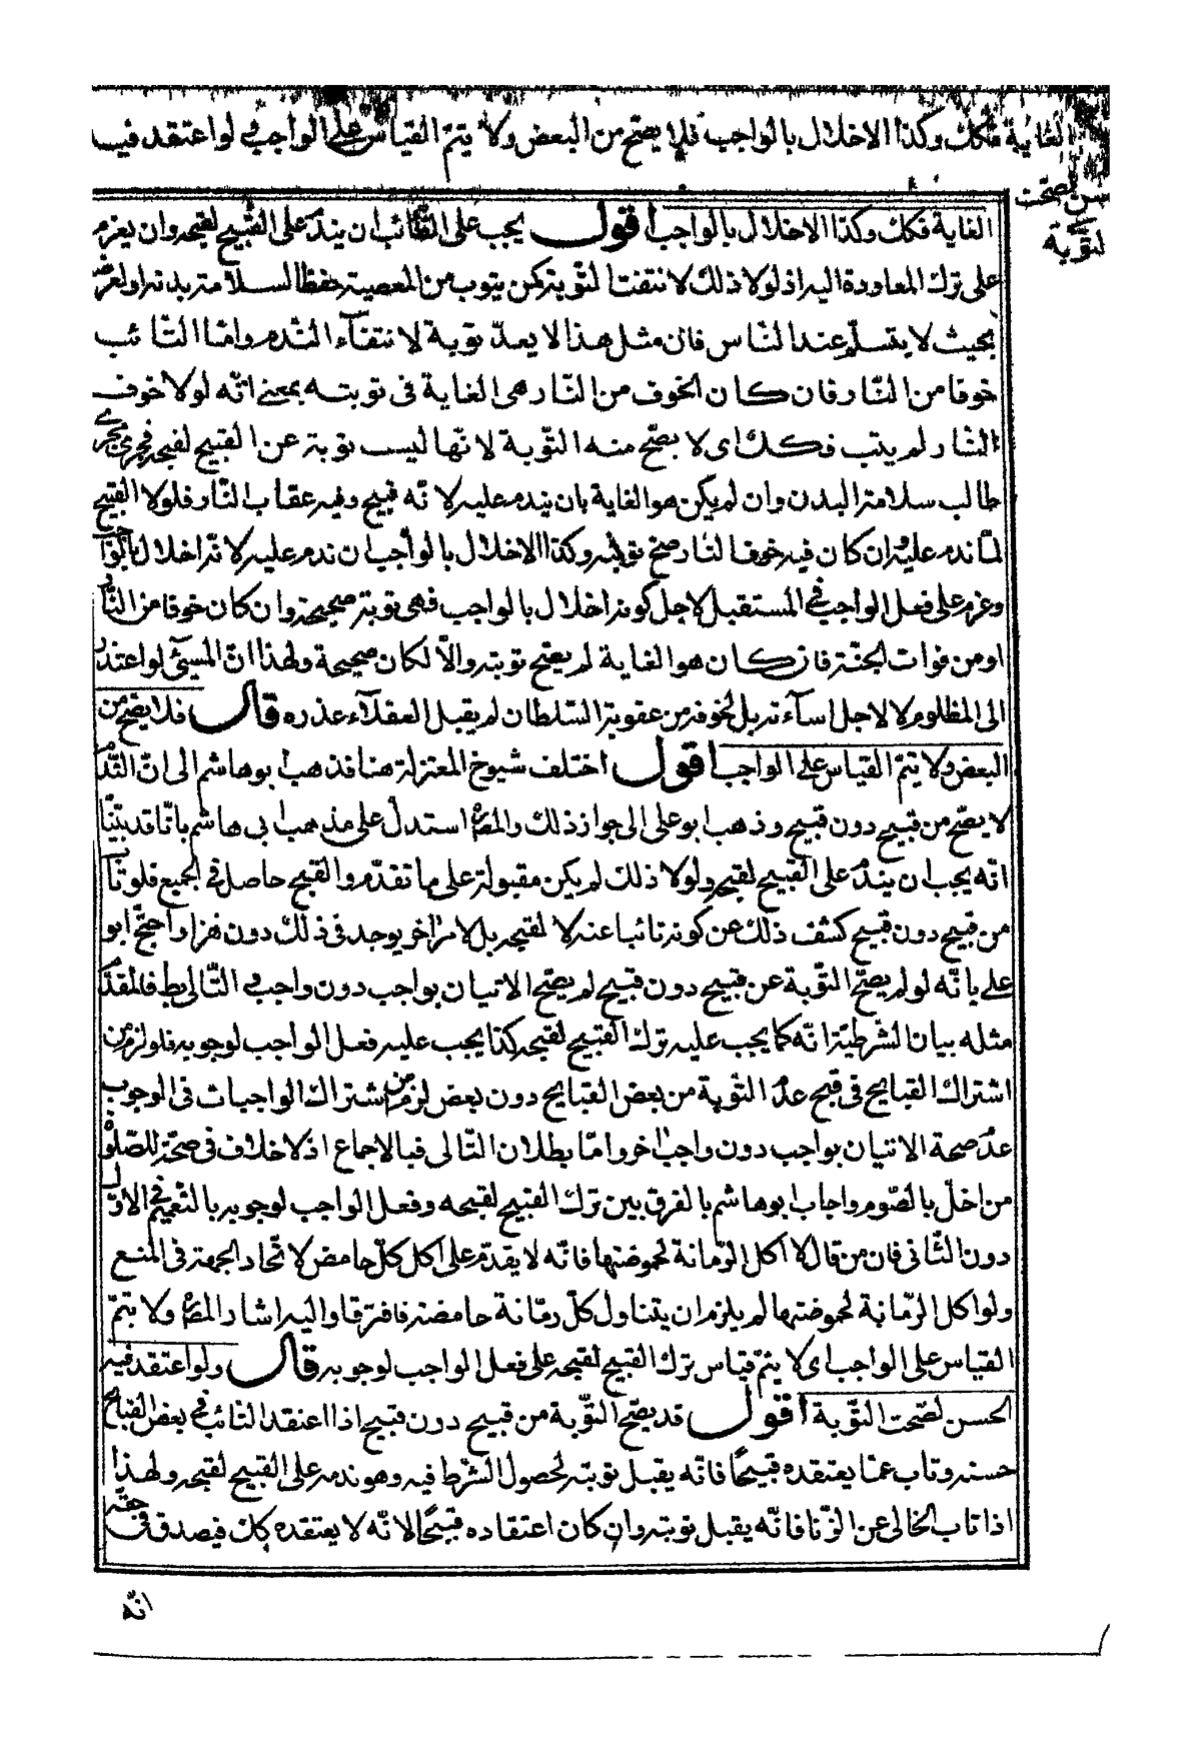 الغاية فكك وكذا الاخلال بالواجب فلا يصح من البعض ولا يتم القياس على الواجب ولو اعتقد فيه
الحسن لصحت
التوبة
الغاية فكك وكذا الاخلال بالواجب اقول يجب على التائب ان يندم على القبيح لقبحه وان يعزم
على ترك المعاودة اليه اذ لولا ذلك لانتفت التوبة كمن يتوب من المعصية حفظا لسلامة بدنه او لعرضه
بحيث لا يتسلم عند الناس فان مثل هذا لا يعدّ توبة لانتفآء الندم وامّا التائب
خوفا من النّار فان كان الخوف من النّار هى الغاية فى توبته بمعنى انّه لولا خوف
النّار لم يتب فكك اى لا يصحّ منه التّوبة لانّها ليست توبة عن القبيح لقبحه فجرى مجرى
طالب سلامة البدن وان لم يكن هو الغاية بان يندم عليه لانّه قبيح وفيه عقاب النّار فلولا القبيح
لما ندم عليه وان كان فيه خوف النار صح توبته وكذا الاخلال بالواجب ان ندم عليه لانه اخلال بالواجب
وعزم على فعل الواجب فى المستقبل لاجل كونه اخلال بالواجب فهى توبة صحيحة وان كان خوفا من النّار
او من فوات الجنّة فان كان هو الغاية لم يصح توبته والّا لكان صحيحة ولهذا انّ المسيئ لو اعتذر
الى المظلوم لا لاجل اسآءته بل لخوفه من عقوبة السّلطان لم يقبل العقلآء عذره قال فلا يصح من
البعض ولا يتمّ القياس على الواجب اقول اختلف شيوخ المعتزلة هنا فذهب ابو هاشم الى انّ التّوبة
لا يصحّ من قبيح دون قبيح وذهب ابو على الى جواز ذلك والمصّ استدلّ على مذهب ابى هاشم بانّا قد بيّنّا
انّه يجب ان يندم على القبيح لقبحه ولولا ذلك لم يكن مقبولة على ما تقدّم والقبح حاصل فى الجميع فلو تاب
من قبيح دون قبيح كشف ذلك عن كونه تائبا عنه لا لقبحه بل لامر اخر يوجد فى ذلك دون هذا واحتجّ ابو
على بانّه لو لم يصحّ التّوبة عن قبيح دون قبيح لم يصحّ الاتيان بواجب دون واجب والتّالى بط فالمقدّم
مثله بيان الشّرطيّة انّه كما يجب عليه ترك القبيح لقبحه كذا يجب عليه فعل الواجب لوجوبه فلو لزم من
اشتراك القبايح فى قبح عدم التّوبة من بعض القبايح دون بعض لزم من اشتراك الواجبات فى الوجوب
عدم صحة الاتيان بواجب دون واجب اخر وامّا بطلان التّالى فبالاجماع اذ لا خلاف فى صحّة الصّلوة
من اخلّ بالصّوم واجاب ابو هاشم بالفرق بين ترك القبيح لقبحه وفعل الواجب لوجوبه بالتّعميم فى الاوّل
دون الثّانى فان من قال لا اكل الرّمانة لحموضتها فانّه لا يقدم على اكل كلّ حامض لاتّحاد الجهة فى المنع
ولو اكل الرّمانة لحموضتها لم يلزم ان يتناول كلّ رمّانة حامضة فافترقا واليه اشار المصّ ولا يتمّ
القياس على الواجب اى لا يتمّ قياس ترك القبيح لقبحه على فعل الواجب لوجوبه قال ولو اعتقد فيه
الحسن لصحّت التّوبة اقول قد يصحّ التّوبة من قبيح دون قبيح اذا اعتقد التائب فى بعض القبائح
حسنه وتاب عمّا يعتقده قبيحًا فانّه يقبل توبته لحصول الشّرط فيه وهو ندمه على القبيح لقبحه ولهذا
اذا تاب الخالى عن الزّنا فانّه يقبل توبته وان كان اعتقاده قبيحًا لانّه لا يعتقده كك فيصدق فى حقّه
انّه